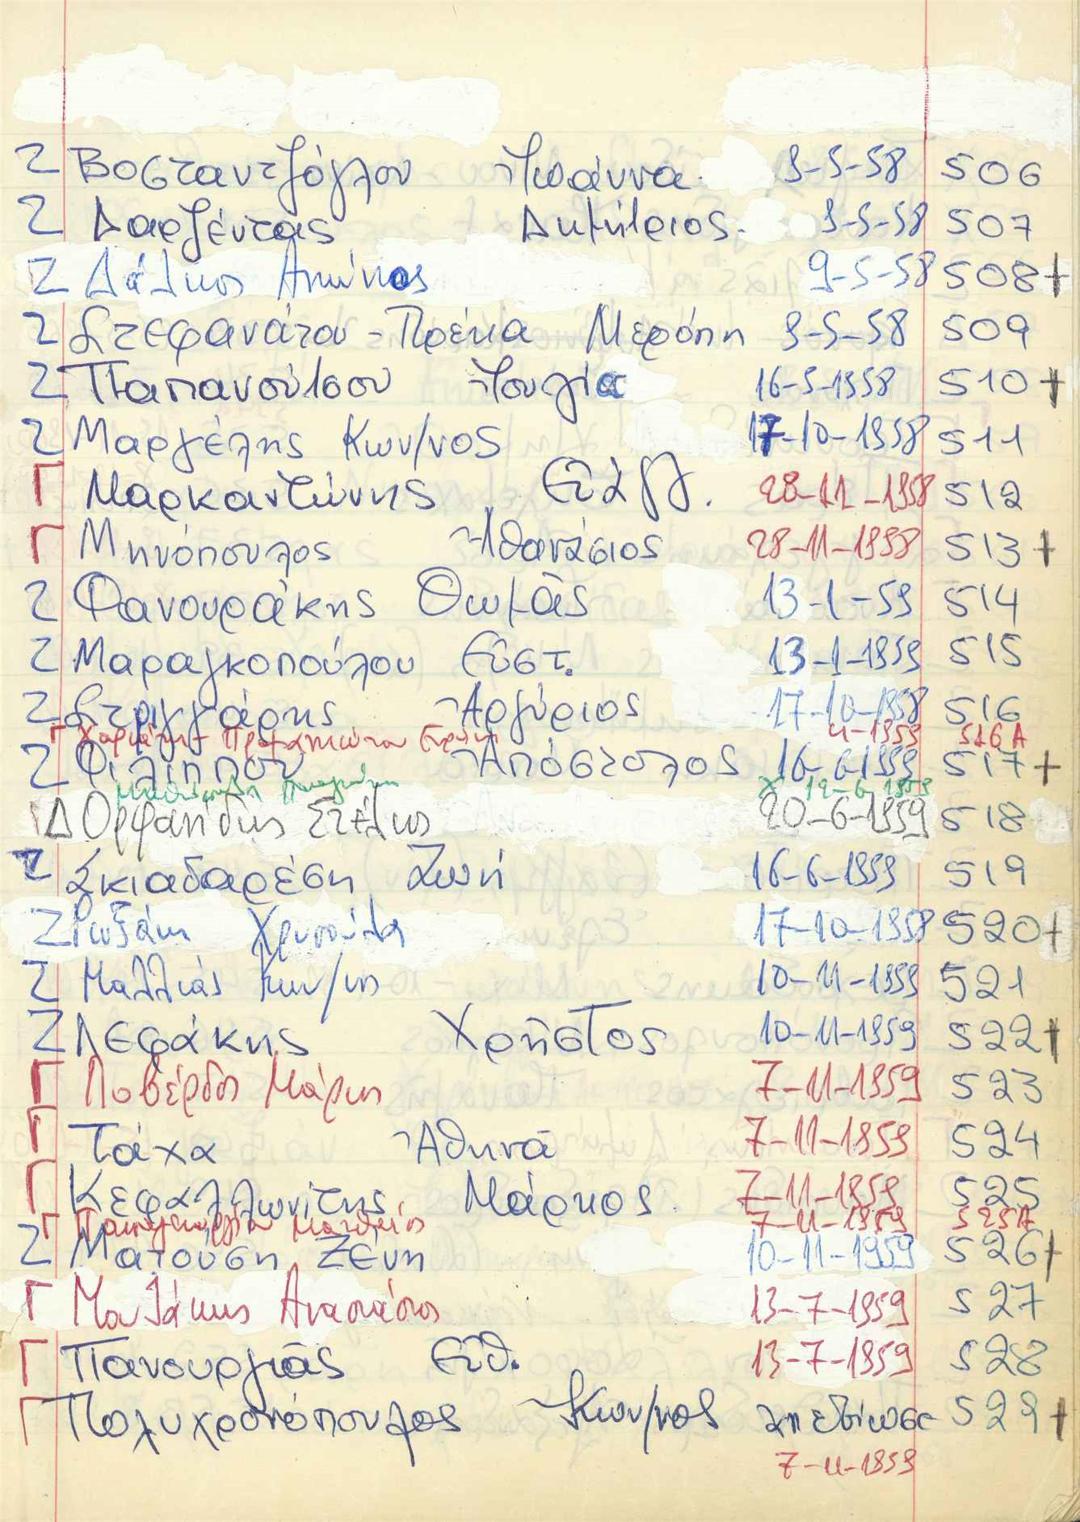 Ζ Βοσταντζόγλου Ἰωάννα. 9-5-58 506
Ζ Δαρζέντας Δημήτριος. 9-5-58 507
Ζ 9-5-58 508+
Ζ Στεφανάτου-Πρέκα Μερόπη 9-5-58 509
Ζ Παπανούτσου Ἰουλία 16-5-1958 510+
Ζ Μαργέλης Κων/νος 17-10-1958 511
Γ Μαρκαντώνης Εὐάγγ. 28-11-1958 512
Γ Μηνόπουλος Ἀθανάσιος 28-11-1958 513+
Ζ Φανουράκης Θωμᾶς 13-1-59 514
Ζ Μαραγκοπούλου Εὐστ. 13-1-1959 515
Ζ Στριγγάρης Ἀργύριος 17-10-1958 516
Γ Χαριάτη- 11-1959 516Α
Ζ Φιλίππου Ἀπόστολος 16-6-1959 517+
12-6-1959
Δ Ορφανίδης Στέλιος 20-6-1959 518
Ζ Σκιαδαρέση Ζωή 16-6-1959 519
Ζ Χρυσούλα 17-10-1958 520+
Ζ Μαλλιάς Κων/νς 10-11-1959 521
Ζ Λεφάκης Χρῆστος 10-11-1959 522+
Γ Λοβέρδος Μάρκς 7-11-1959 523
Γ Τάχα Ἀθηνᾶ 7-11-1959 524
Γ Κεφαλλωνίτης Μάρκος. 7-11-1959 525
Γ Παπαγεωργίου Ματθαίος 7-11-1959 525Α
Ζ Ματούση Ζένη 10-11-1959 526+
Γ Αναστάσιος 13-7-1959 527
Γ Πανουργιᾶς Εὐθ. 13-7-1959 528
Γ Πολυχρονόπουλος Κων/νος ἀπεβίωσε 529+
7-11-1959